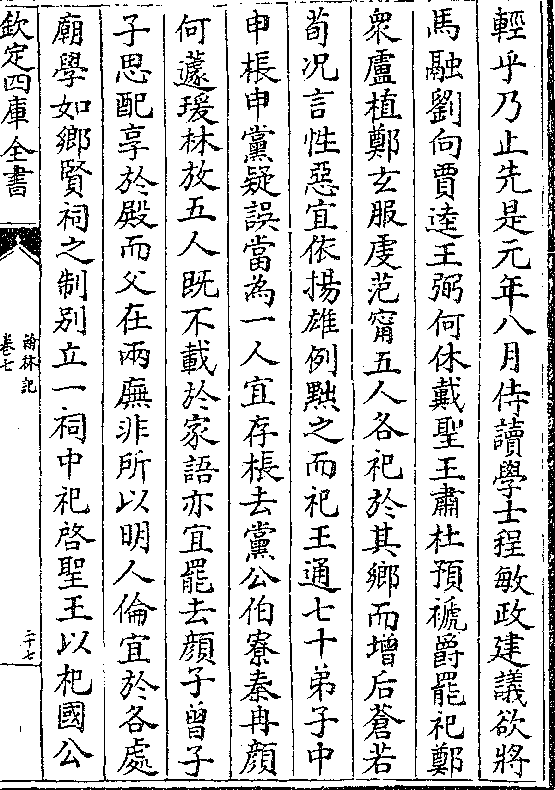 輕乎乃止先是元年八月侍讀學士程敏政建議欲將
馬融劉向賈逵王弼何休戴聖王肅杜預褫爵罷祀鄭
衆盧植鄭玄服虔范甯五人各祀於其鄉而增后蒼若
荀况言性惡宜依揚雄例黜之而祀王通七十弟子中
申棖申黨疑誤當為一人宜存棖去黨公伯寮秦冉顔
何蘧瑗林放五人既不載於家語亦宜罷去顔子曾子
子思配享於殿而父在兩廡非所以明人倫宜於各處
廟學如鄉賢祠之制別立一祠中祀啓聖王以杞國公
欽定四庫全書
翰林記
卷七
二十七